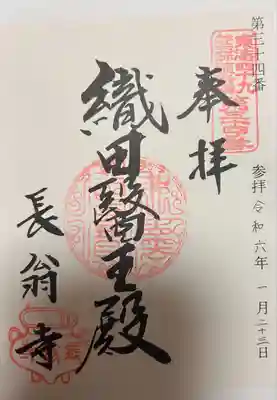 第三十四番
参拝 令和六年 一月二十三日
奉拝
織田醫王殿
長翁寺